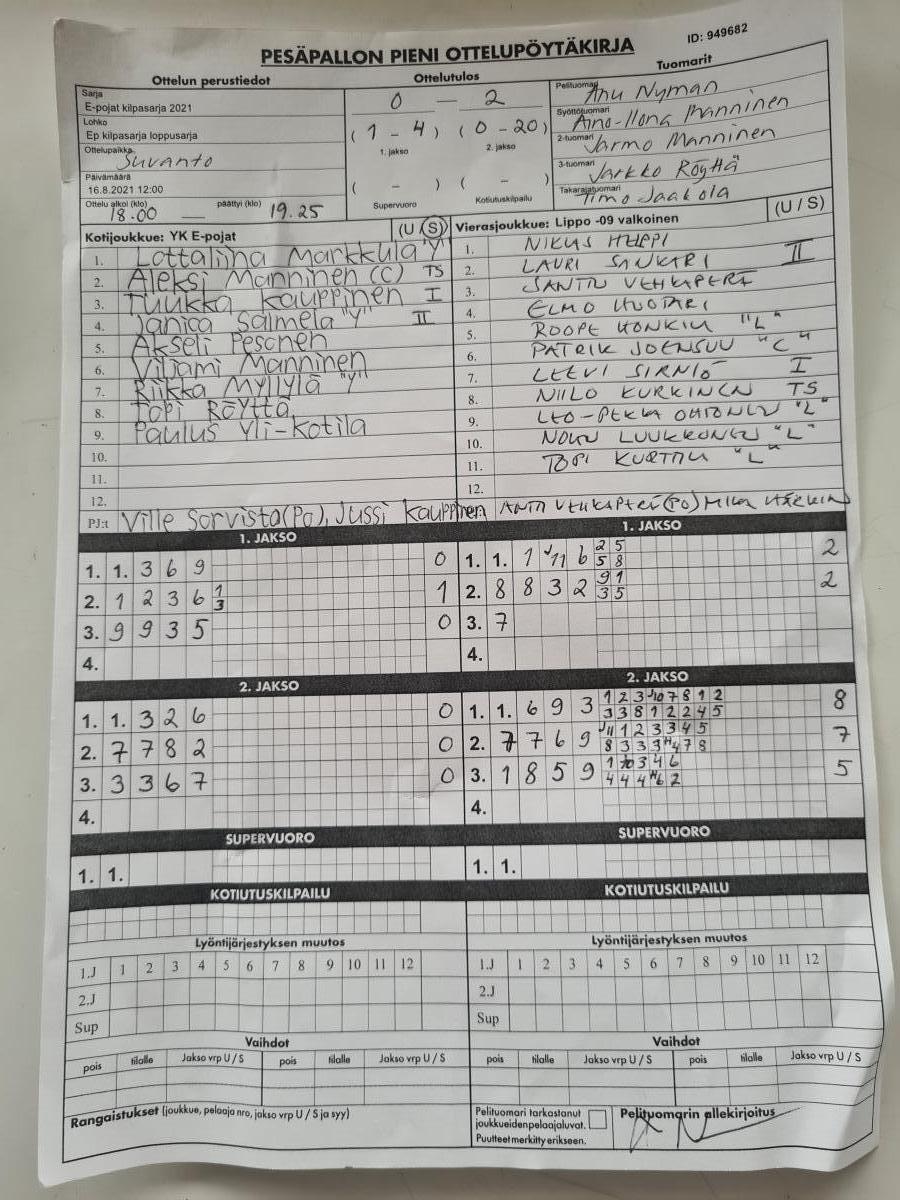 PESÄPALLON PIENI OTTELUPÖYTÄKIRJA
ID: 949682
Ottelun perustiedot
Ottelutulos
Tuomarit
Sarja
E-pojat kilpasarja 2021
Lohko
Ep kilpasarja loppusarja
Ottelupaikka
Suvanto
Päivämäärä
16.8.2021 12:00
Ottelu alkoi (klo) päättyi (klo)
18.00 — 19.25
0 — 2
(1 - 4) (0 - 20)
1. jakso 2. jakso
( - ) ( - )
Supervuoro Kotiutuskilpailu
Pelituomari Anu Nyman
Syöttötuomari Aino-Ilona Manninen
2-tuomari Jarmo Manninen
3-tuomari Jarkko Röyttä
Takarajatuomari Timo Jaakola
Kotijoukkue: YK E-pojat (U/S)
1. Lottaliina Markkula "Y"
2. Aleksi Manninen (C) TS
3. Tuukka Kauppinen I
4. Janica Salmela "Y" II
5. Akseli Pesonen
6. Viljami Manninen
7. Riikka Myllylä "Y"
8. Topi Röyttä
9. Paulus Yli-Kotila
10.
11.
12.
PJ:t Ville Sorvisto(Po), Jussi Kauppinen
Vierasjoukkue: Lippo -09 valkoinen (U/S)
1. NIKLAS HEIPPI
2. LAURI SANKARI II
3. SANTTU VEHKAPERÄ
4. ELMO HUOTARI
5. ROOPE HONKIN "L"
6. PATRIK JOENSUU "C"
7. LEEVI SIRNIÖ I
8. NIILO KURKINEN TS
9. LEO-PEKKA OHTONEN "L"
10. LUUKKONEN "L"
11. TOPI "L"
12.
ANTTI VEHKAPERÄ(PO) MIKA HÄRKIN
1. JAKSO
1. 1. 3 6 9 0
2. 1 2 3 6 1 1
3
3. 9 9 3 5 0
4.
2. JAKSO
1. 1. 3 2 6 0
2. 7 7 8 2 0
3. 3 3 6 7 0
4.
SUPERVUORO
1. 1.
KOTIUTUSKILPAILU
1. JAKSO
1. 1. 1 J11 6 2 5 2
5 8
2. 8 8 3 2 9 1 2
3 5
3. 7
4.
2. JAKSO
1. 1. 6 9 3 1 2 3 J10 7 8 1 2 8
3 3 8 1 2 2 4 5
2. 7 7 6 9 J11 1 2 3 3 4 5 7
8 3 3 3 4 7 8
3. 1 8 5 9 1 10 3 4 6 5
4 4 4 6 2
4.
SUPERVUORO
1. 1.
KOTIUTUSKILPAILU
Lyöntijärjestyksen muutos
1.J 1 2 3 4 5 6 7 8 9 10 11 12
2.J
Sup
Vaihdot
pois tilalle Jakso vrp U / S pois tilalle Jakso vrp U / S
Lyöntijärjestyksen muutos
1.J 1 2 3 4 5 6 7 8 9 10 11 12
2.J
Sup
Vaihdot
pois tilalle Jakso vrp U / S pois tilalle Jakso vrp U / S
Rangaistukset (joukkue, pelaaja nro, jakso vrp U / S ja syy)
Pelituomari tarkastanut
joukkueiden pelaajaluvat.
Puutteet merkitty erikseen.
Pelituomarin allekirjoitus